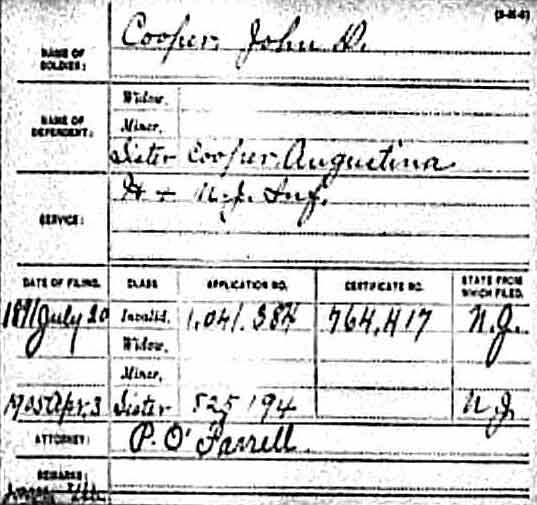 (3-H-6)
NAME OF SOLDIER: Cooper, John D.
NAME OF DEPENDENT:
Widow,
Minor,
Sister Cooper, Augustina
SERVICE: H + N.J. Inf.
DATE OF FILING. CLASS APPLICATION NO. CERTIFICATE NO. STATE FROM WHICH FILED.
1891 July 20 Invalid, 1,041,384 764,417 N.J.
Widow,
Minor,
1905 Apr. 3 Sister 825194 N.J.
ATTORNEY: P. O'Farrell.
REMARKS: